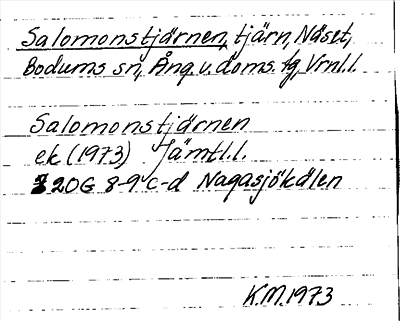 Salomonstjärnen, tjärn, Näset,
Bodums sn, Ång. v. doms. tg, Vrnl.l.
Salomonstjärnen
ek (1973) Jämtl.l.
20G 8-9 c-d Nagasjökälen
K.M. 1973